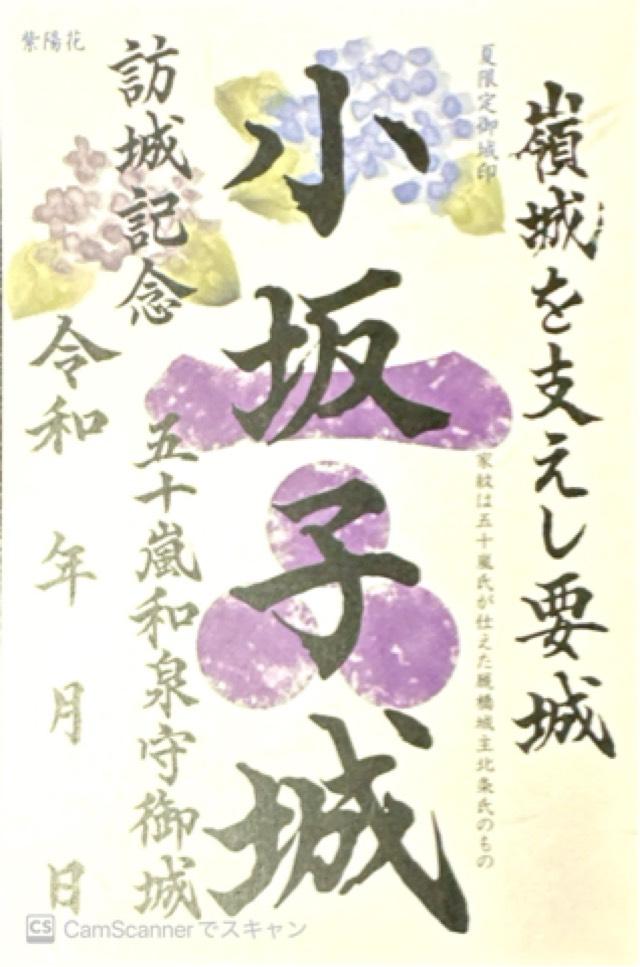 嶺城を支えし要城
夏限定御城印
家紋は五十嵐氏が仕えた厩橋城主北条氏のもの
小坂子城
訪城記念
五十嵐和泉守御城
紫陽花
令和 年 月 日
CS CamScannerでスキャン